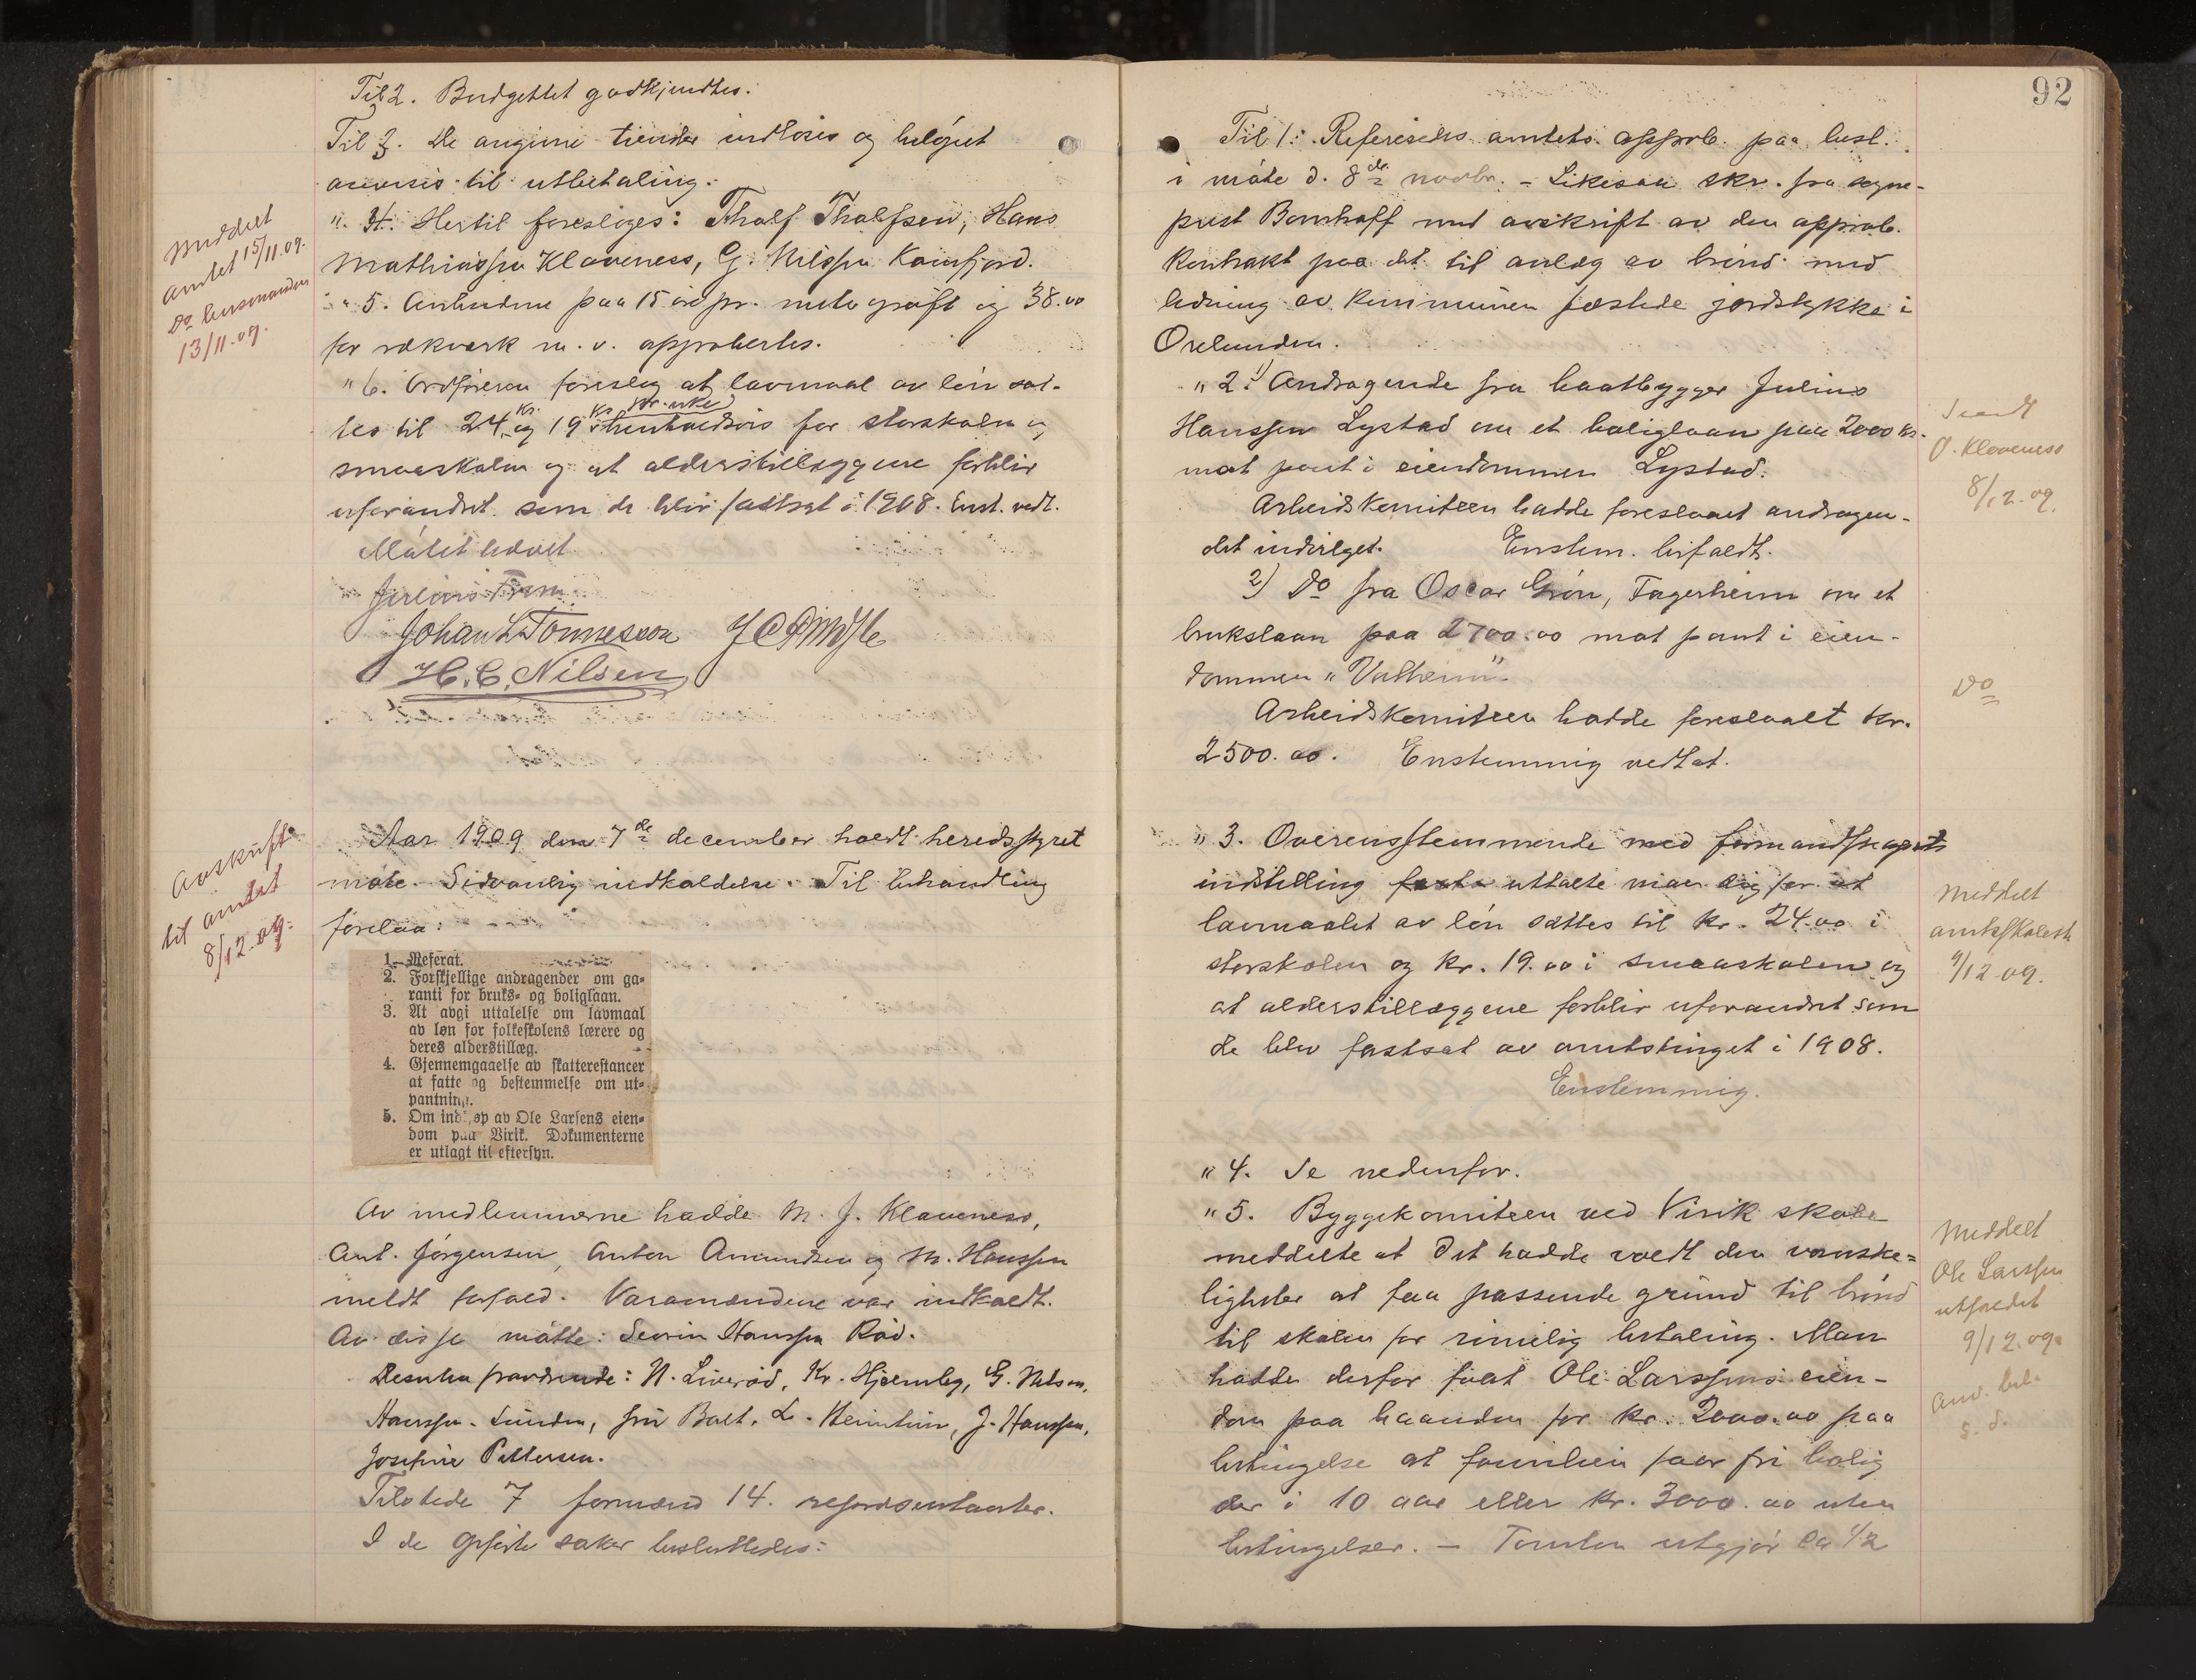 Til 2. Budgettet godkjendtes.
Til 3. De angivne tiender indløses og beløpet
anvises til utbetaling.
" 4. Hertil foresloges: Thalf Thalfsen, Hans
Mathiassen Klaveness, G. Nilssen Kamfjord.
" 5. Anbudene paa 15 øre pr. meter grøft og 38.00
for rækverk m. v. approbertes.
" 6. Ordføreren foreslog at lavmaal av løn sæt-
tes til 24 kr. og 19 kr. pr. uke henholdsvis for storskolen og
smaaskolen og at alderstillæggene forblir
uforandret som de blev fastsat i 1908. Enst. vedt.
Møtet hævet
Julius Fram
Johan L. Tønnesson
H. C. Nilsen
Meddelt
amtet 15/11.09.
Do lensmanden
13/11.09.
Aar 1909 den 7de december holdt heredsstyret
møte. Sedvanlig indkaldelse. Til behandling
forelaa:
Avskrift
til amtet
8/12.09.
1. Referat.
2. Forskjellige andragender om ga-
ranti for bruks- og boliglaan.
3. At avgi uttalelse om lavmaal
av løn for folkeskolens lærere og
deres alderstillæg.
4. Gjennemgaaelse av skatterestancer
at fatte og bestemmelse om ut-
pantning.
5. Om indkjøp av Ole Larsens eien-
dom paa Virik. Dokumenterne
er utlagt til eftersyn.
Av medlemmerne hadde M. J. Klaveness,
Ant. Jørgensen, Anton Amundsen og M. Hanssen
meldt forfald. Varamændene var indkaldt.
Av disse møtte: Severin Hanssen Rød.
Desuten fraværende: N. Liverød, Kr. Hjemleg, G. Nilssen,
Hanssen-Sunden, fru Boet, L. Heimtun, J. Hanssen,
Josefine Pettersen.
Tilstede 7 formænd 14 repræsentanter.
I de opførte saker besluttedes:
92
Til 1: Refereredes amtets approb. paa besl.
i møte d. 8de novbr. - Likesaa skr. fra sogne-
prest Bomhoff med avskrift av den approb.
kontrakt paa det til anlæg av brønd med
ledning av kommunen fæstede jordstykke i
Orelunden.
" 2. 1) Andragende fra baatbygger Julius
Hanssen Lystad om et boliglaan paa 2000 kr.
mot pant i eiendommen Lystad.
Arbeidskomiteen hadde foreslaaet andragen-
det indvilget. Enstem. bifaldt.
2) Do fra Oscar Grøn, Fagerheim om et
brukslaan paa 2700.00 mot pant i eien-
dommen "Valheim".
Arbeidskomiteen hadde foreslaalt kr.
2500.00. Enstemmig vedtat.
Sendt
O. Klaveness
8/12.09.
Do
" 3. Overensstemmende med formandskapets
indstilling uttalte man sig for at
lavmaalet av løn sættes til kr. 24.00 i
storskolen og kr. 19.00 i smaaskolen og
at alderstillæggene forblir uforandret som
de blev fastsat av amtstinget i 1908.
Enstemmig.
Meddelt
amtsskolest.
9/12.09.
" 4. Se nedenfor.
" 5. Byggekomiteen ved Virik skole
meddelte at det hadde voldt den vanske-
ligheter at faa passende grund til brønd
til skolen for rimelig betaling. Man
hadde derfor faat Ole Larssens eien-
dom paa haanden for kr. 2000.00 paa
betingelse at familien faar fri bolig
der i 10 aar eller kr. 3000.00 uten
betingelser. - Tomten utgjør ca 1/2
Meddelt
Ole Larssen
utfærdet
9/12.09.
anv. bel.
s. d.